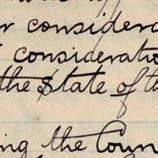 r considera
consideratio
the State of t
ing the Coun